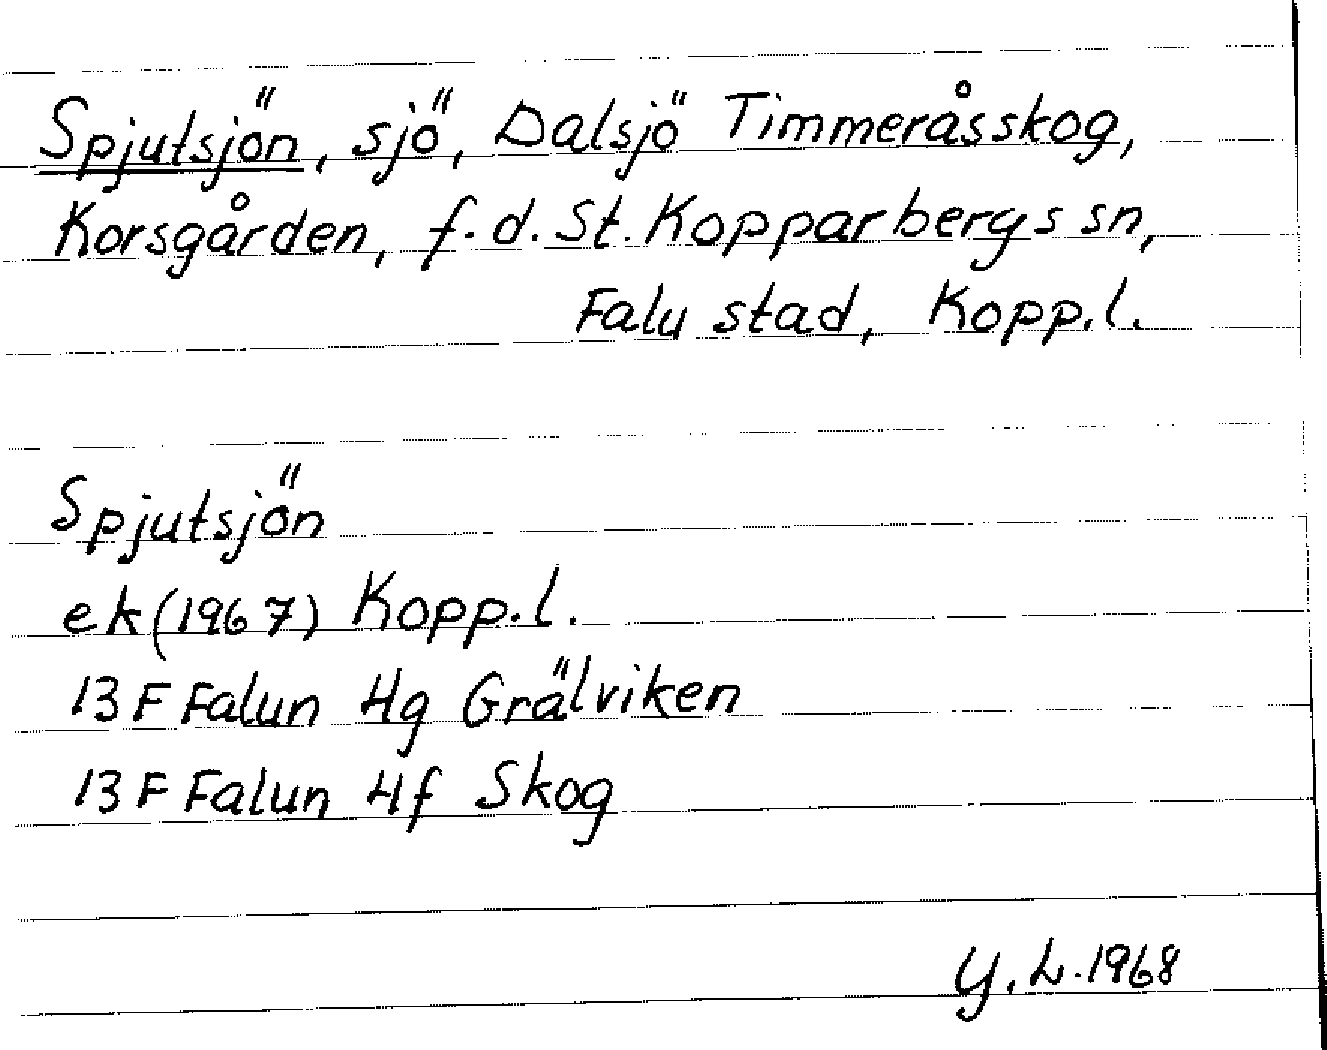 Spjutsjön, sjö, Dalsjö Timmeråsskog,
Korsgården, f.d. St. Kopparbergs sn,
Falu stad, Kopp.l.
Spjutsjön
ek (1967) Kopp.l.
13 F Falun 4g Grälviken
13 F Falun 4f Skog
Y.L. 1968